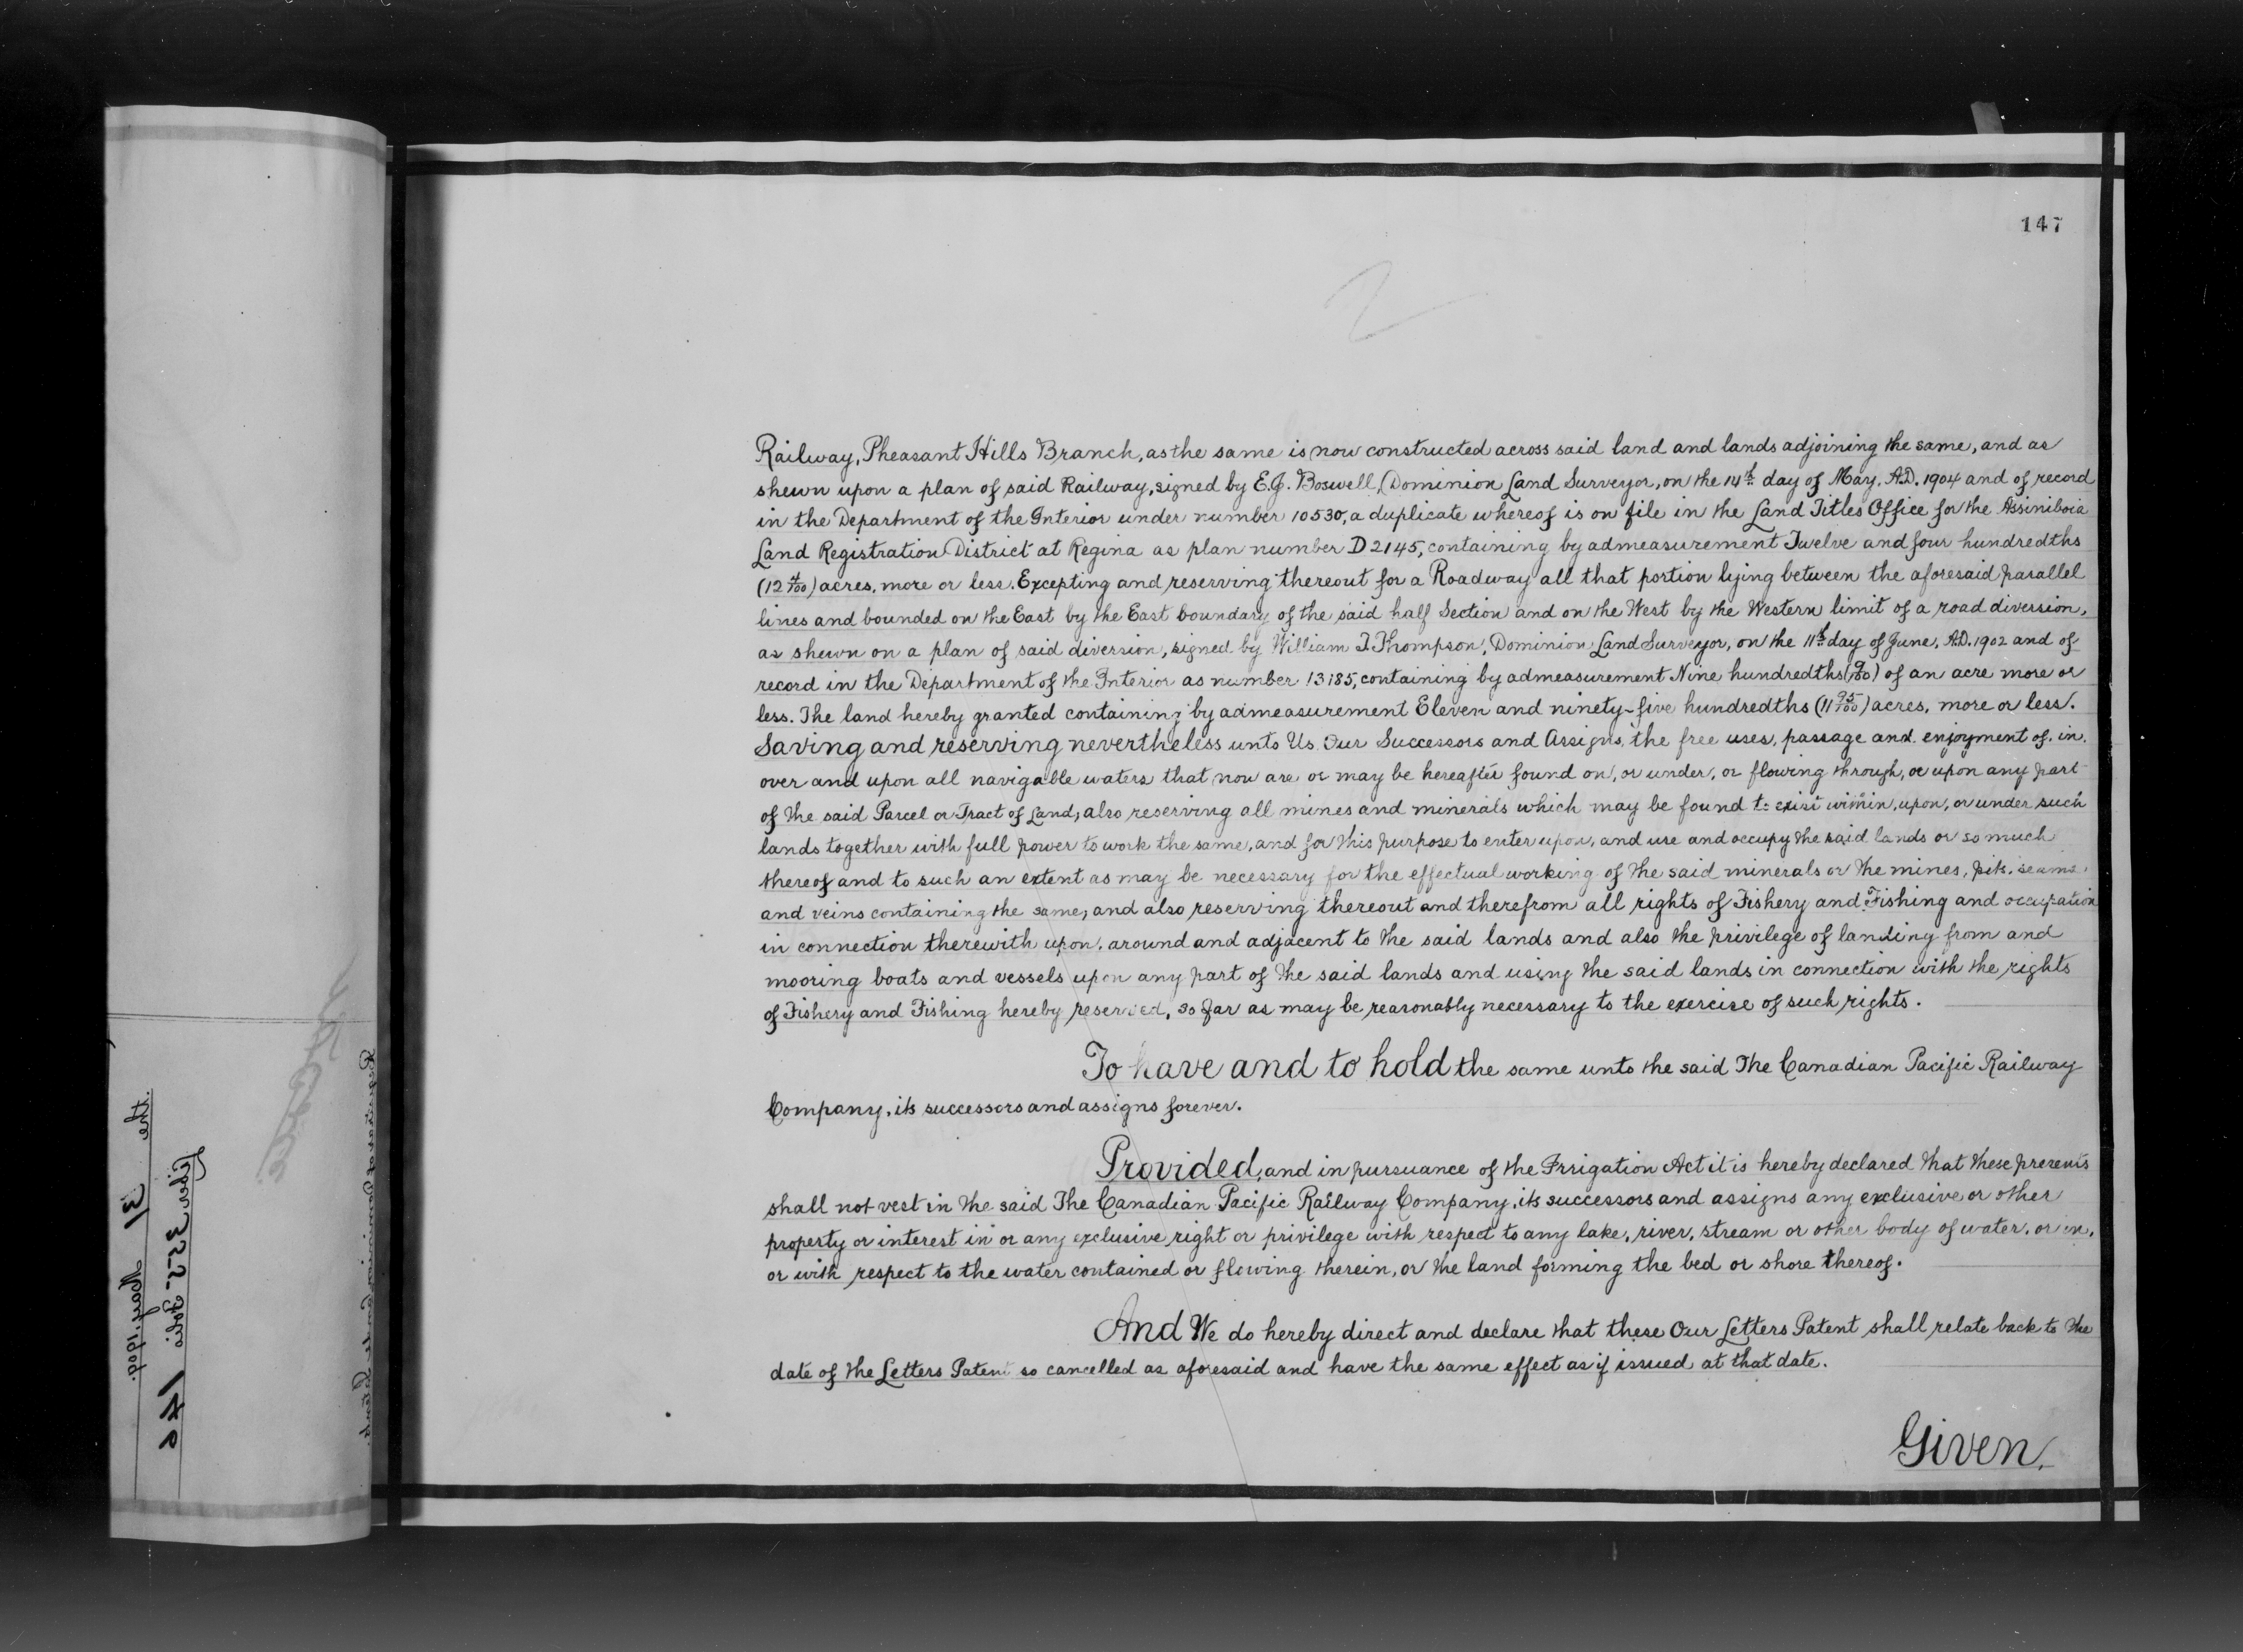 147
2
Railway, Pheasant Hills Branch, as the same is now constructed across said land and lands adjoining the same, and as
shewn upon a plan of said Railway, signed by E.J. Boswell, Dominion Land Surveyor, on the 14th day of May, A.D. 1904 and of record
in the Department of the Interior under number 10530, a duplicate whereof is on file in the Land Titles Office for the Assiniboia
Land Registration District at Regina as plan number D 2145, containing by admeasurement Twelve and four hundredths
(12 4/100) acres, more or less. Excepting and reserving thereout for a Roadway all that portion lying between the aforesaid parallel
lines and bounded on the East by the East boundary of the said half Section and on the West by the Western limit of a road diversion,
as shewn on a plan of said diversion, signed by William T. Thompson, Dominion Land Surveyor, on the 11th day of June, A.D. 1902 and of
record in the Department of the Interior as number 13185, containing by admeasurement Nine hundredths (9/100) of an acre more or
less. The land hereby granted containing by admeasurement Eleven and ninety-five hundredths (11 95/100) acres, more or less.
Saving and reserving nevertheless unto Us Our Successors and Assigns, the free uses, passage and enjoyment of, in,
over and upon all navigable waters that now are or may be hereafter found on, or under, or flowing through, or upon any part
of the said Parcel or Tract of Land; also reserving all mines and minerals which may be found to exist within, upon, or under such
lands together with full power to work the same, and for this purpose to enter upon, and use and occupy the said lands or so much
thereof and to such an extent as may be necessary for the effectual working of the said minerals or the mines, pits, seams,
and veins containing the same; and also reserving thereout and therefrom all rights of Fishery and Fishing and occupation
in connection therewith upon, around and adjacent to the said lands and also the privilege of landing from and
mooring boats and vessels upon any part of the said lands and using the said lands in connection with the rights
of Fishery and Fishing hereby reserved, so far as may be reasonably necessary to the exercise of such rights.
To have and to hold the same unto the said The Canadian Pacific Railway
Company, its successors and assigns forever.
Provided, and in pursuance of the Irrigation Act it is hereby declared that these presents
shall not vest in the said The Canadian Pacific Railway Company, its successors and assigns any exclusive or other
property or interest in or any exclusive right or privilege with respect to any lake, river, stream or other body of water, or in,
or with respect to the water contained or flowing therein, or the land forming the bed or shore thereof.
And We do hereby direct and declare that these Our Letters Patent shall relate back to the
date of the Letters Patent so cancelled as aforesaid and have the same effect as if issued at that date.
Given,
the 31 May, 1909.
Liber 355 Folio 146